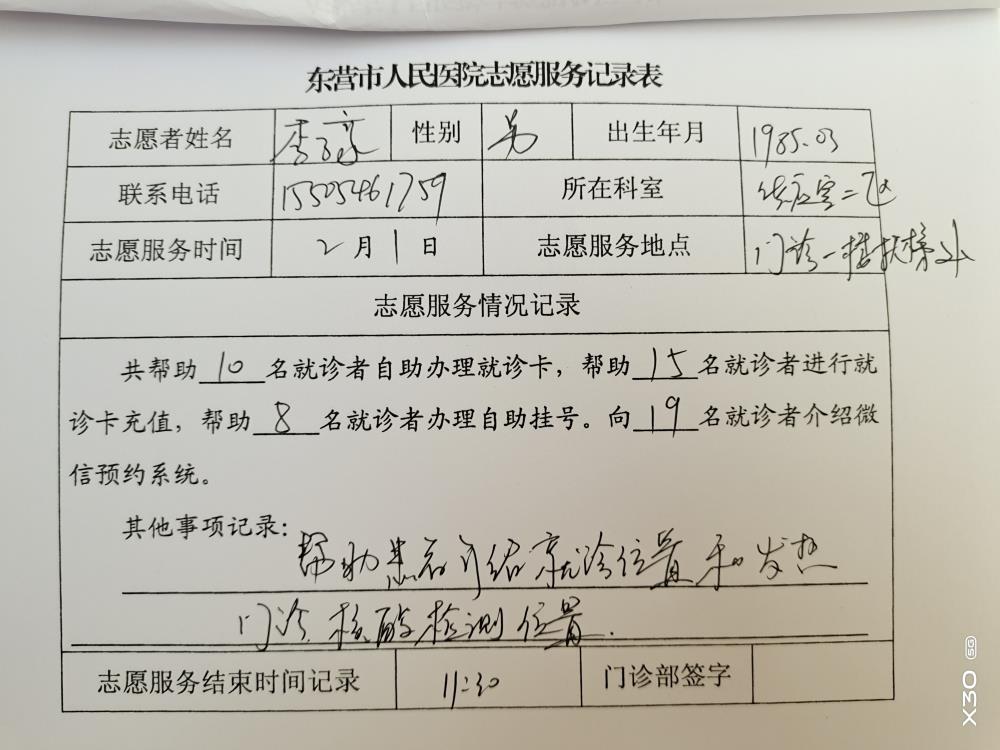 东营市人民医院志愿服务记录表
志愿者姓名 李 性别 男 出生年月 1985.03
联系电话 15505461759 所在科室 供应室二区
志愿服务时间 2月1日 志愿服务地点 门诊一楼扶梯
志愿服务情况记录
共帮助10名就诊者自助办理就诊卡，帮助15名就诊者进行就
诊卡充值，帮助8名就诊者办理自助挂号。向19名就诊者介绍微
信预约系统。
其他事项记录：
帮助患者介绍就诊位置和发热
门诊、核酸检测位置.
志愿服务结束时间记录 11:30 门诊部签字
X30 5G